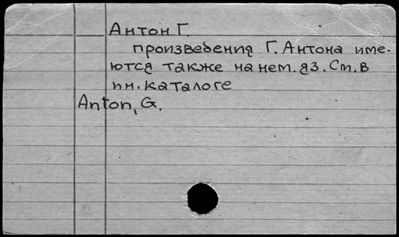 Антон Г.
произведения Г. Антона име-
ются также на нем. яз. См. в
ин. каталоге
Anton, G.